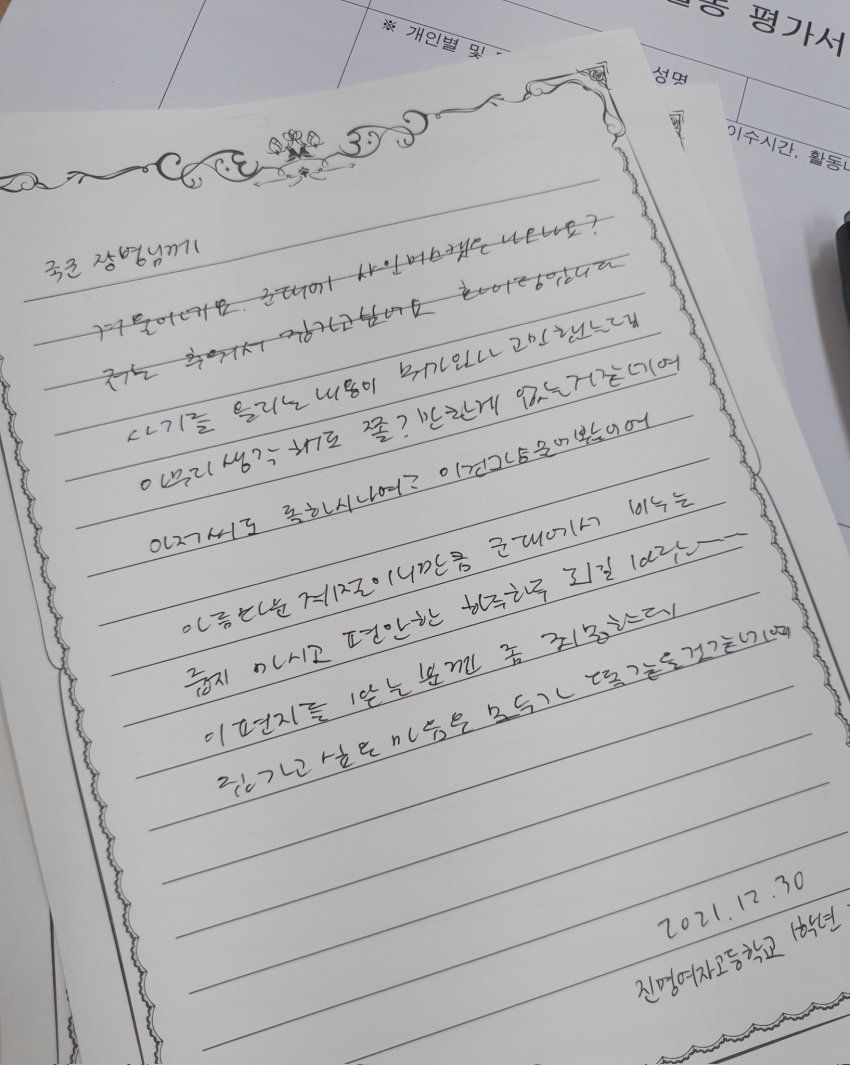 활동 평가서
※ 개인별 및
성명
이수시간, 활동내
국군 장병님께
겨울이네요. 군대에서 샤인머스캣은 나오나요?
저는 추워서 집가고싶네요 화이팅입니다
사기를 올리는 내용이 뭐가있나 고민했는데
아무리 생각해도 꼴? 만한게 없는거같네여
아저씨도 록하시나여?
아름다운 계절이니만큼 군대에서 비누는
줍지 마시고 편안한 하루하루 되길 바랍니
이편지를 받는분껜 좀 죄송한데
집가고 싶은 마음은 모두가 똑같을것같네여
2021.12.30
진명여자고등학교 1학년